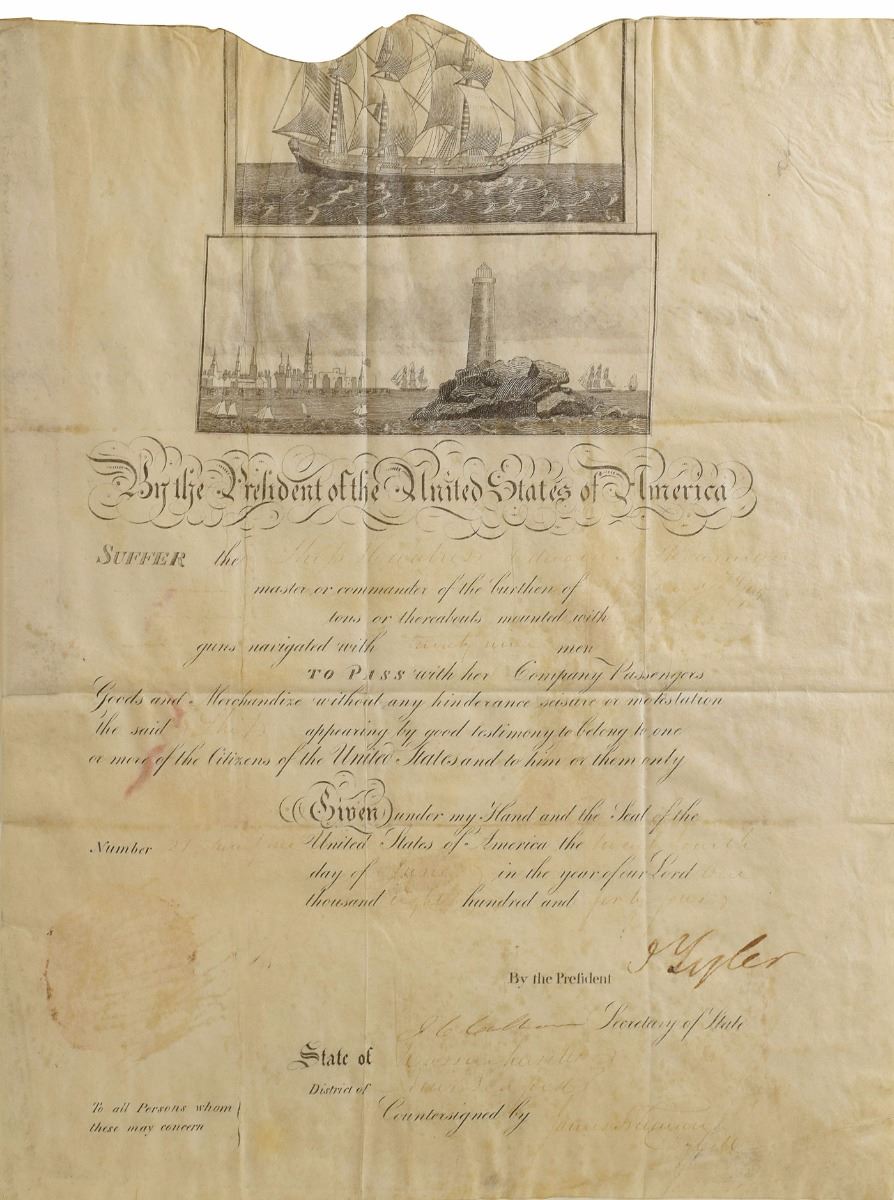 By the President of the United States of America
SUFFER the Ship
master or commander of the burthen of
tons or thereabouts mounted with
guns navigated with twenty nine men
TO PASS with her Company Passengers
Goods and Merchandize without any hinderance seisure or molestation
the said Ship appearing by good testimony to belong to one
or more of the Citizens of the United States and to him or them only
Given under my Hand and the Seal of the
Number United States of America the twenty fourth
day of June in the year of our Lord one
thousand eight hundred and forty four
By the Preſident J Tyler
J C Calhoun Secretary of State
State of Massachusetts
District of New Bedford
Countersigned by
To all Persons whom
these may concern